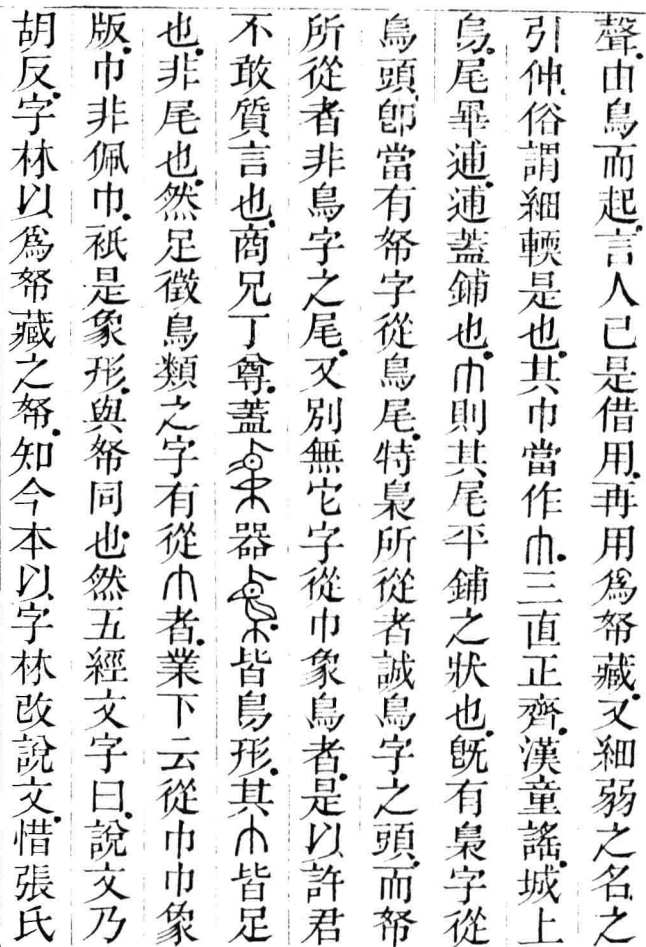 聲由鳥而起言人己是借用再用爲帑藏又細弱之名之
引伸俗謂細輭是也其巾當作三直正齊漢童謠城上
烏尾畢逋逋蓋鋪也則其尾平鋪之狀也旣有梟字從
鳥頭卽當有帑字從鳥尾特梟所從者誠鳥字之頭而帑
所從者非鳥字之尾又別無它字從巾象鳥者是以許君
不敢質言也商兄丁尊蓋器皆鳥形其皆足
也非尾也然足徵鳥類之字有從者業下云從巾巾象
版巾非佩巾衹是象形與帑同也然五經文字曰說文乃
胡反字林以爲帑藏之帑知今本以字林改說文惜張氏